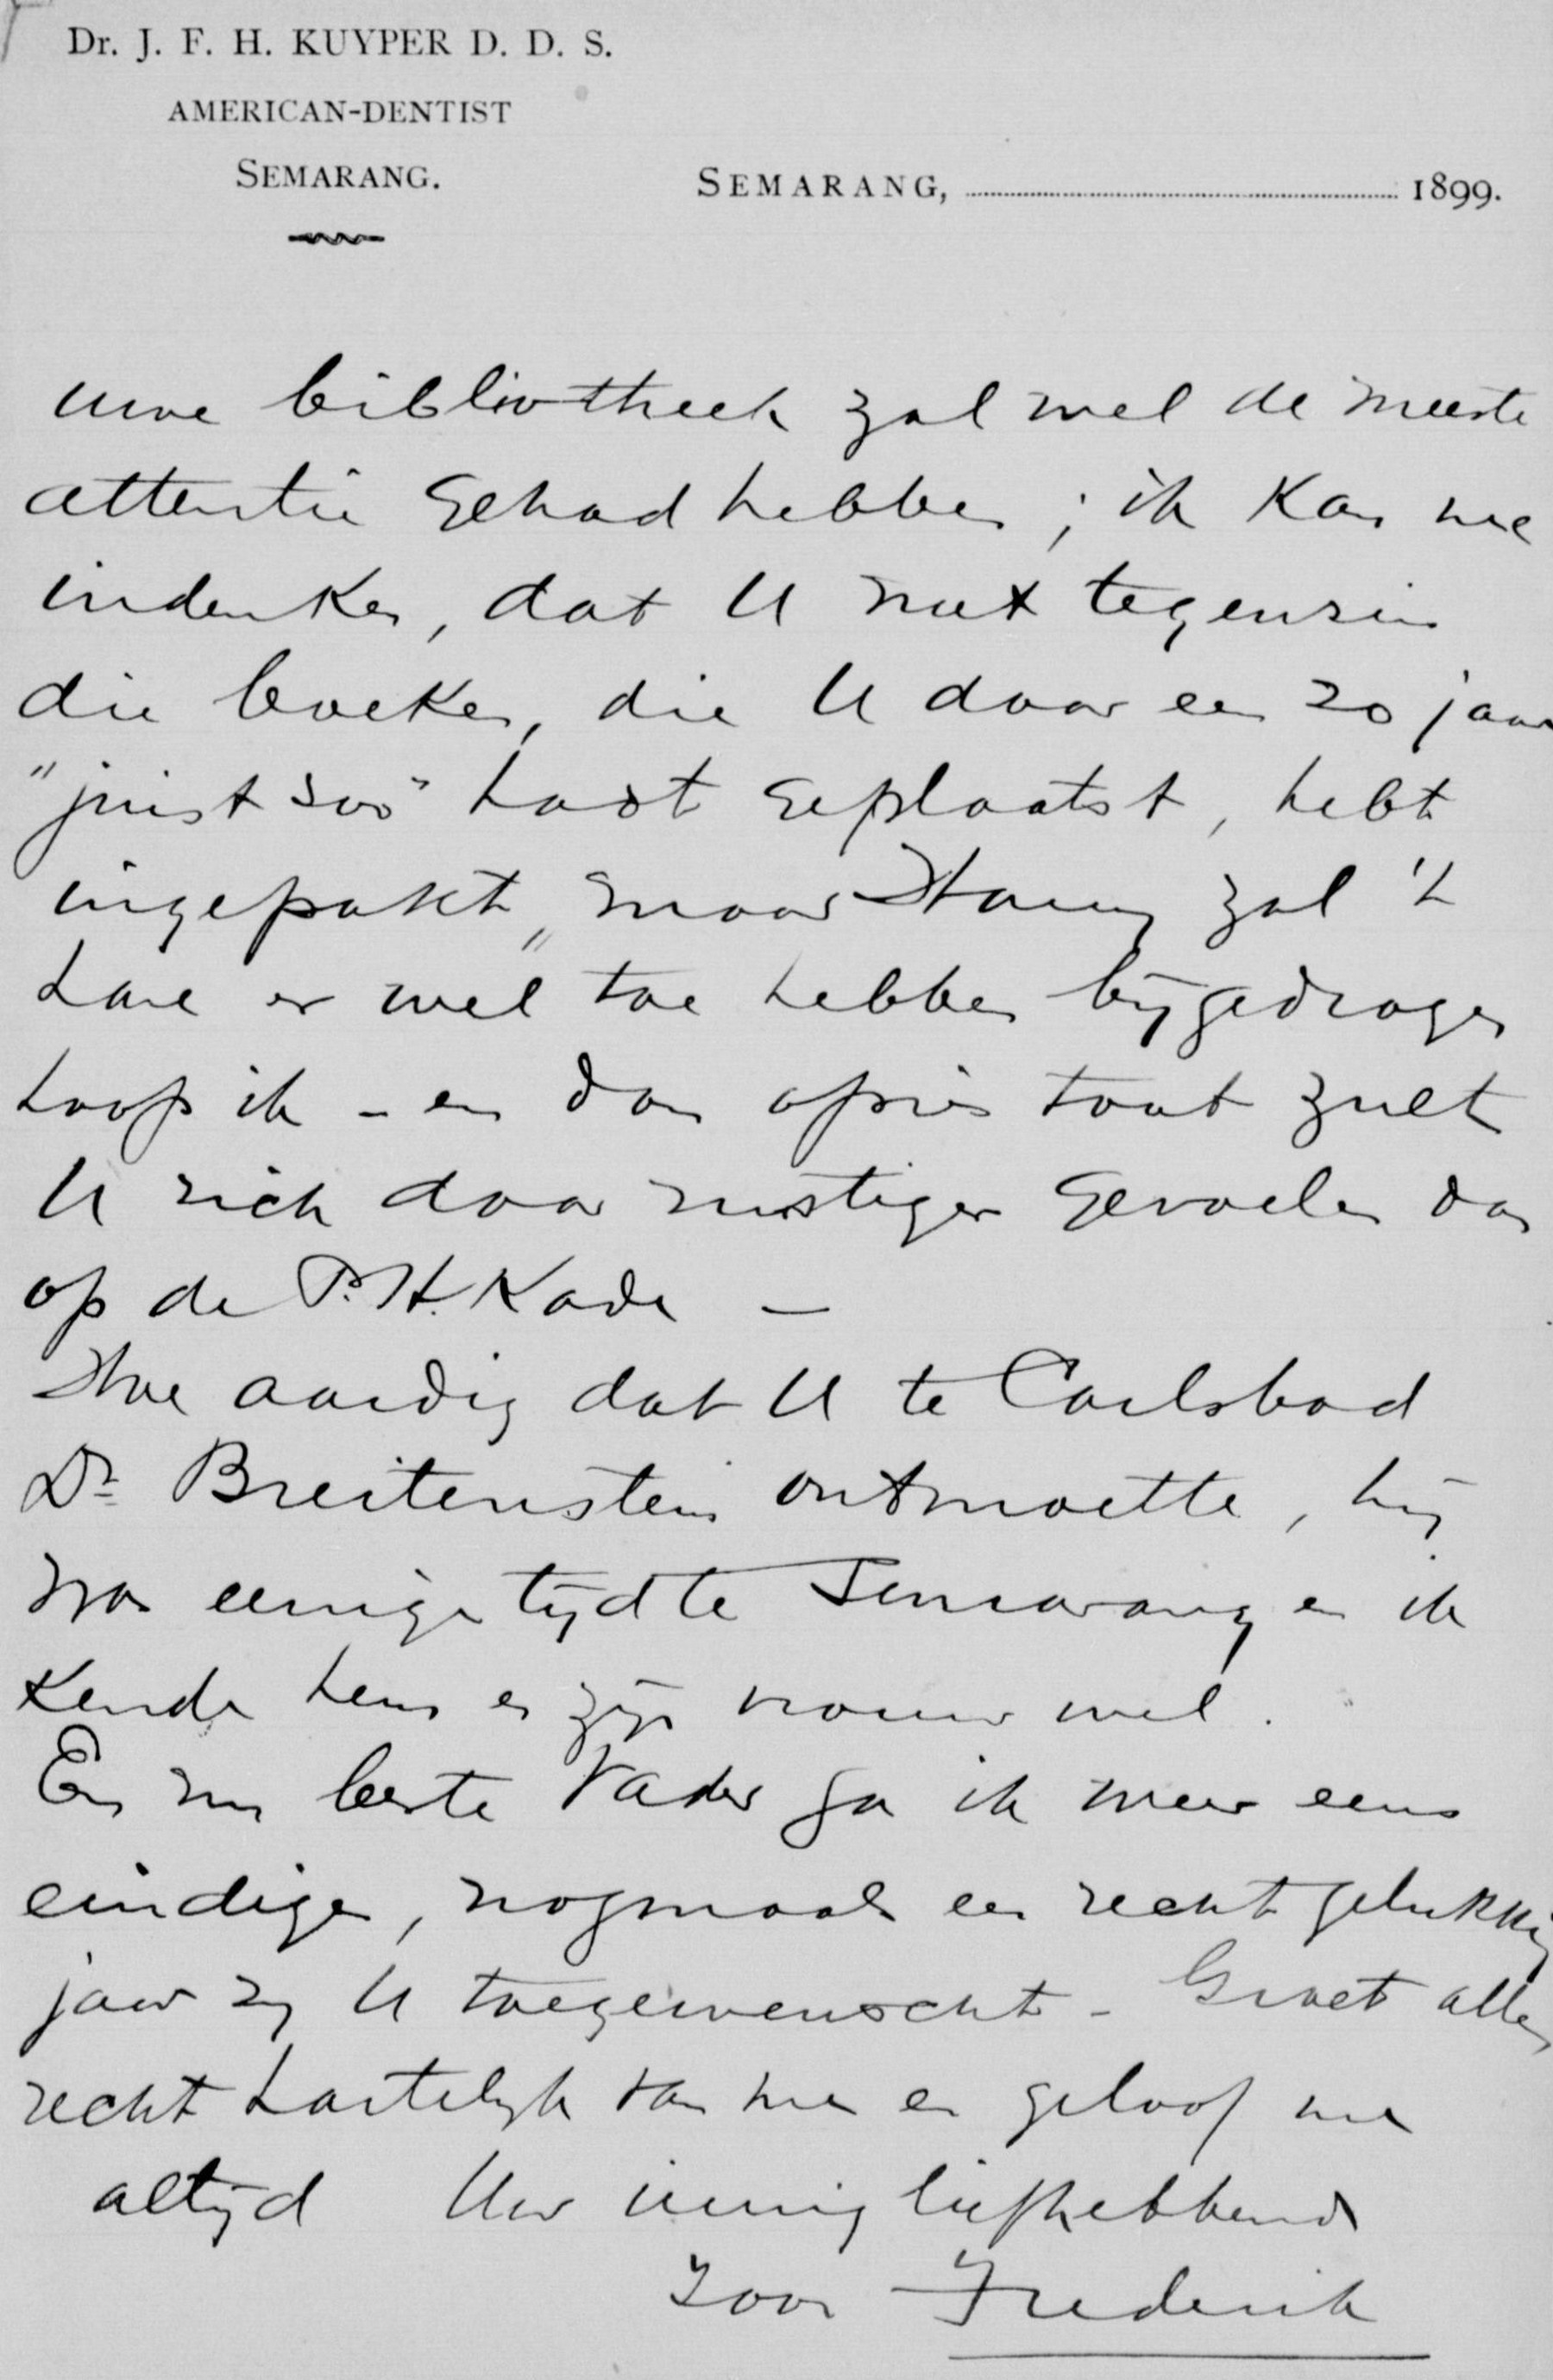 Dr. J. F. H. KUYPER D. D. S.
AMERICAN-DENTIST
SEMARANG.
SEMARANG, 1899.
uwe bibliotheek zal wel de meeste
attentie gehad hebben ; ik kan me
indenken, dat U met tegenzin
die boeken, die U daar een 20 jaar
"juist zoo" hadt geplaatst, hebt
ingepakt, maar Harry zal 't
hare er wel toe hebben bijgedragen
hoop ik - en dan après tout zult
U zich daar rustiger gevoelen dan
op de P.H. Kade —
Hoe aardig dat U te Carlsbad
Dr Breitenstein ontmoette, hij
was eenige tijd te Semarang en ik
kende hem en zijn vrouw wel.
En nu beste Vader ga ik weer eens
eindigen, nogmaals een recht gelukkig
jaar zij U toegewenscht - Groet allen
recht hartelijk van me en geloof me
altijd Uw innig liefhebbende
Zoon Frederik